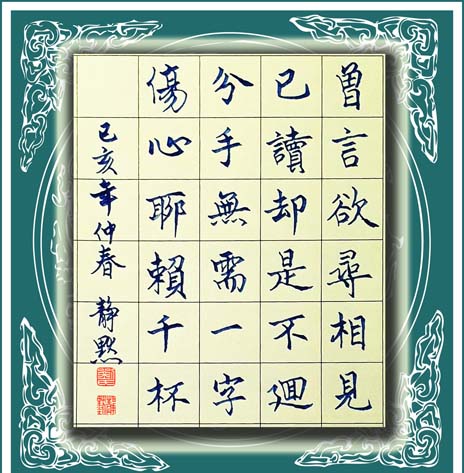 曾言欲尋相見
已讀却是不廻
分手無需一字
傷心耶賴千杯
己亥年仲春 静默